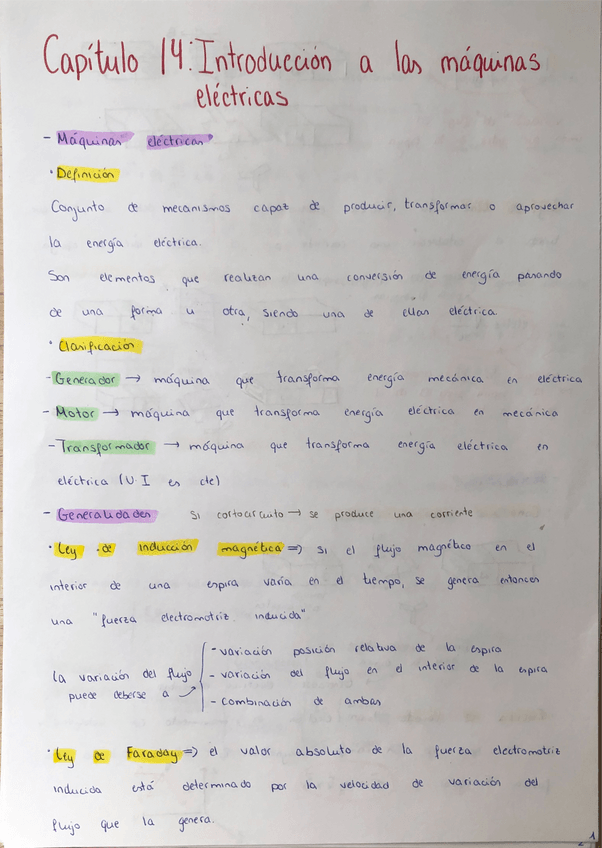 Capítulo 14: Introducción a las máquinas
eléctricas
- Máquinas eléctricas
· Definición
Conjunto de mecanismos capaz de producir, transformar o aprovechar
la energía eléctrica.
Son elementos que realizan una conversión de energía pasando
de una forma u otra, siendo una de ellas eléctrica.
· Clasificación
- Generador → máquina que transforma energía mecánica en eléctrica
- Motor → máquina que transforma energía eléctrica en mecánica
- Transformador → máquina que transforma energía eléctrica en
eléctrica (U·I es cte)
- Generalidades si cortocircuito → se produce una corriente
· Ley de inducción magnética => si el flujo magnético en el
interior de una espira varía en el tiempo, se genera entonces
una "fuerza electromotriz inducida"
la variación del flujo
puede deberse a
- variación posición relativa de la espira
- variación del flujo en el interior de la espira
- combinación de ambas
· Ley de Faraday => el valor absoluto de la fuerza electromotriz
inducida está determinado por la velocidad de variación del
flujo que la genera.
1